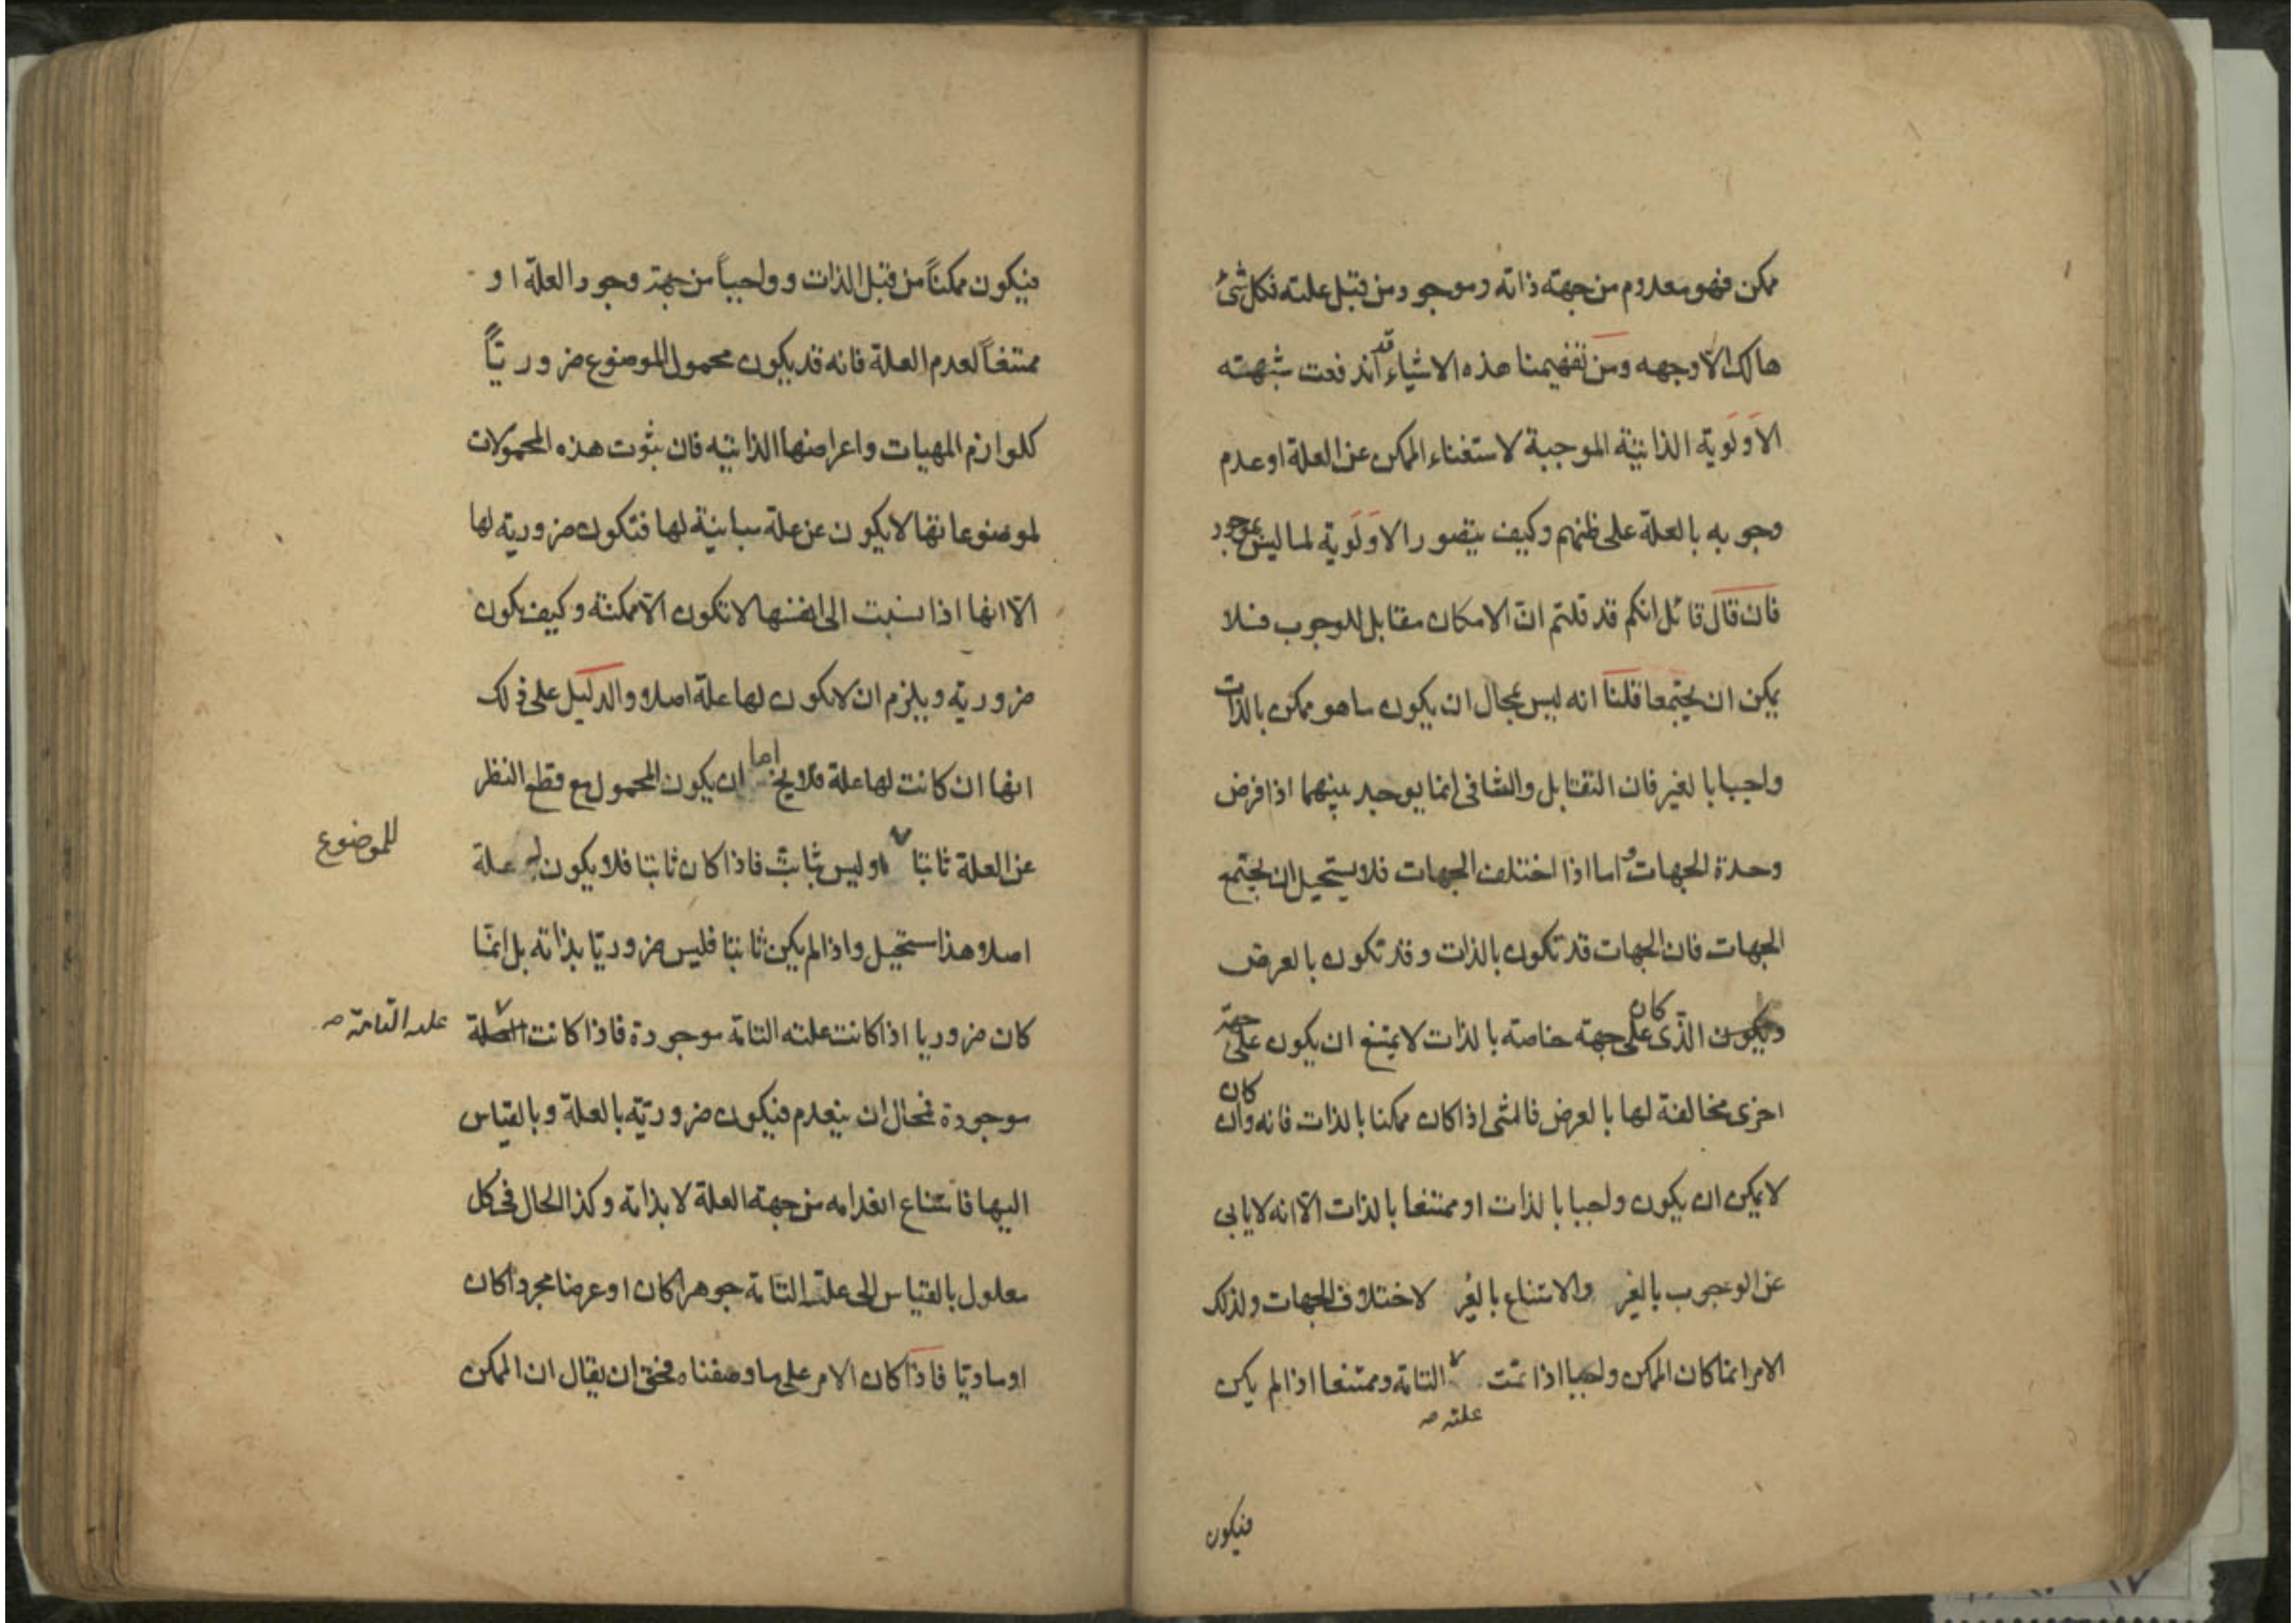 ممكن فهو معدوم من جهة ذاته وموجود من قبل علته فكل شئ
هالك الا وجهه ومن تفهيمنا هذه الاشياء قد اندفعت شبهته
الاولوية الذاتية الموجبة لاستغناء الممكن عن العلة او عدم
وجوبه بالعلة على ظنهم وكيف يتصور الاولوية لما ليس بموجود
فان قال قائل انكم قد قلتم ان الامكان مقابل للوجوب فلا
يمكن ان يجتمعا قلنا انه ليس بمحال ان يكون ما هو ممكن بالذات
واجبا بالغير فان التقابل والتنافى انما يوجد بينهما اذا فرض
وحدة الجهات واما اذا اختلف الجهات فلا يستحيل ان يجتمع
الجهات فان الجهات قد تكون بالذات وقد تكون بالعرض
ويكون الذى كان على جهة خاصة بالذات لا يمتنع ان يكون على جهة
اخرى مخالفة لها بالعرض فالشئ اذا كان ممكنا بالذات فانه وان كان
لا يمكن ان يكون واجبا بالذات او ممتنعا بالذات الا انه لا يابى
عن الوجوب بالغير والامتناع بالغير لاختلاف الجهات ولذلك
الامر انما كان الممكن واجبا اذا تمت التامة وممتنعا اذا لم يكن
علته صـ
فيكون
فيكون ممكناً من قبل الذات وواجباً من جهة وجود العلة او
ممتنعاً لعدم العلة فانه قد يكون محمول الموضوع ضروريّاً
كلوازم المهيات واعراضها الذاتيه فان ثبوت هذه المحمولات
لموضوعاتها لا يكون عن علة مباينة لها فتكون ضرورية لها
الّا انها اذا نسبت الى انفسها لا تكون الّا ممكنة وكيف يكون
ضرورية ويلزم ان لا يكون لها علة اصلا والدليل على ذلك
انها ان كانت لها علة فلا يخ اما ان يكون المحمول مع قطع النظر
عن العلة ثابتا اوليس بثابت فاذا كان ثابتا فلا يكون له علة
للموضوع
اصلا هذا مستحيل واذا لم يكن ثابتا فليس ضروريّا بذاته بل انمّا
كان ضروريا اذا كانت علته التامة موجودة فاذا كانت العلة
علته التامة صـ
موجودة فمحال ان ينعدم فيكون ضروريّة بالعلة وبالقياس
اليها فامتناع انعدامه من جهة العلة لا بذاته وكذا الحال فى كل
معلول بالقياس الى علته التامة جوهرا كان او عرضا مجردا كان
او ماديّا فاذا كان الامر على ما وصفناه فحق ان يقال ان الممكن